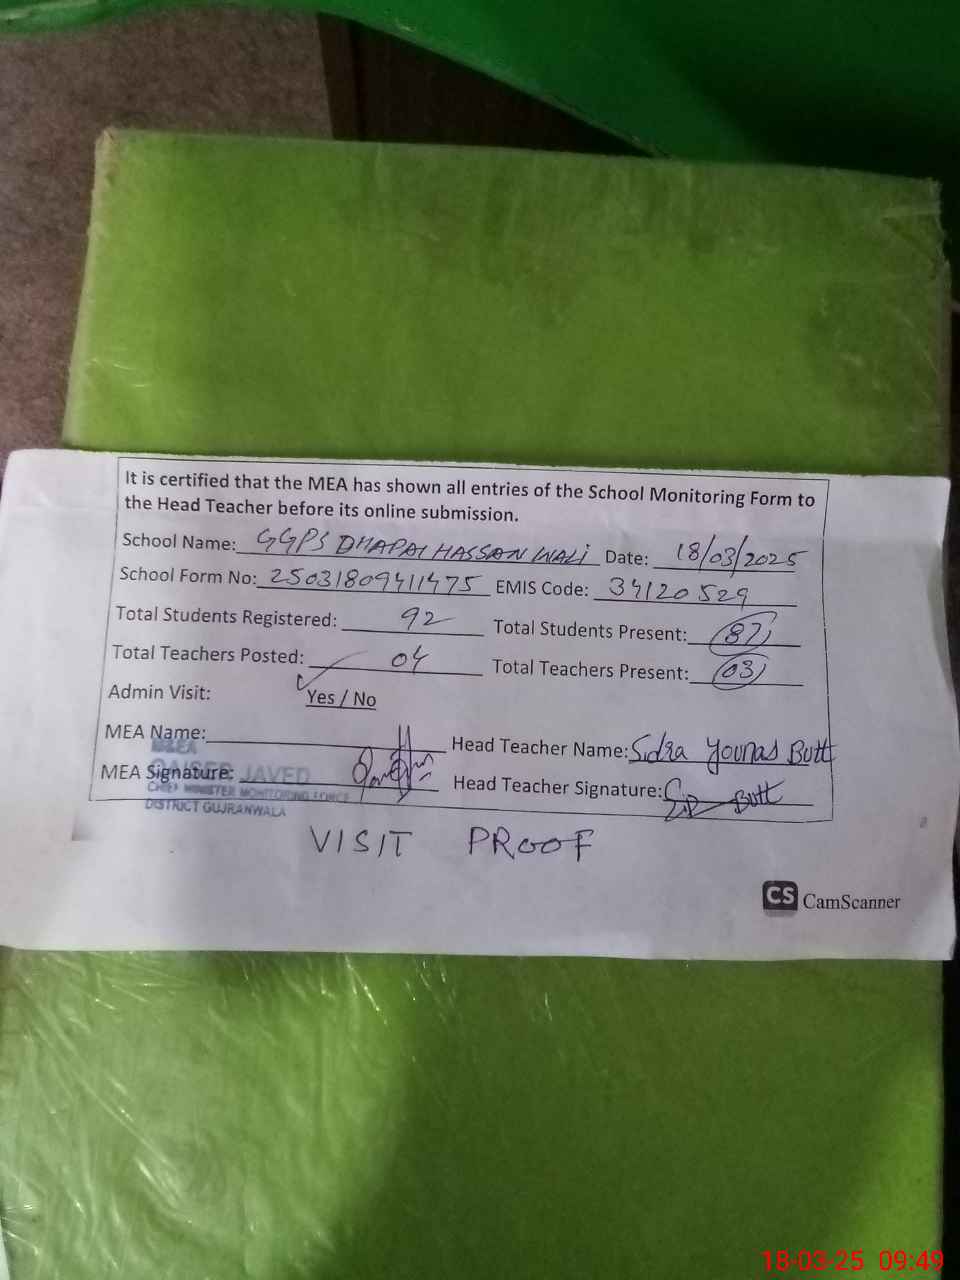 It is certified that the MEA has shown all entries of the School Monitoring Form to
the Head Teacher before its online submission.
School Name: GGPS DHAPAI HASSAN WALI Date: 18/03/2025
School Form No: 25031809411475 EMIS Code: 34120529
Total Students Registered: 92 Total Students Present: 87
Total Teachers Posted: 04 Total Teachers Present: 03
Admin Visit: Yes / No
MEA Name: Head Teacher Name: Sidra Younas Butt
MEA Signature: Head Teacher Signature: Butt
JAVED
CHIEF MINISTER MONITORING FORCE
DISTRICT GUJRANWALA
VISIT PROOF
CS CamScanner
18-03-25 09:49